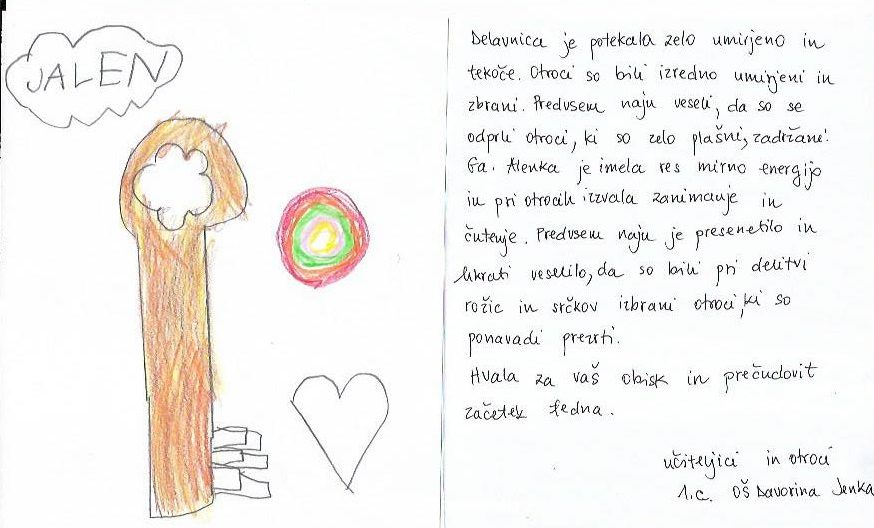 JALEN
Delavnica je potekala zelo umirjeno in
tekoče. Otroci so bili izredno umirjeni in
zbrani. Predvsem naju veseli, da so se
odprli otroci, ki so zelo plašni, zadržani.
Ga. Alenka je imela res mirno energijo
in pri otrocih izzvala zanimanje in
čutenje. Predvsem naju je presenetilo in
hkrati veselilo, da so bili pri delitvi
rožic in srčkov izbrani otroci, ki so
ponavadi prezrti.
Hvala za vaš obisk in prečudovit
začetek tedna.
učiteljici in otroci
1.c. OŠ Davorina Jenka